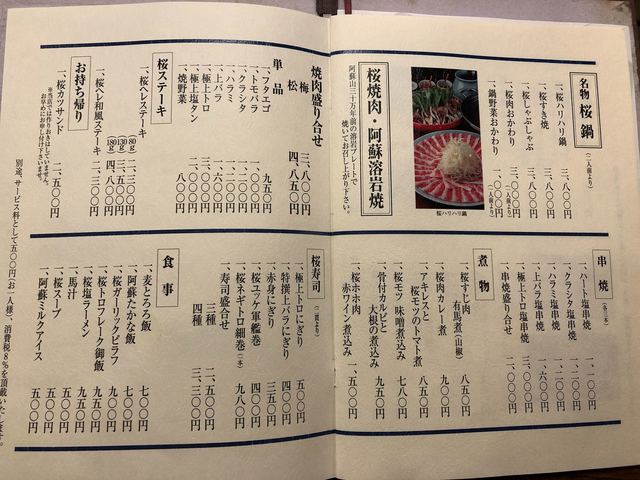 名物 桜鍋 (二人前より)
一、桜ハリハリ鍋 三、八〇〇円
一、桜すき焼 三、八〇〇円
一、桜しゃぶしゃぶ 三、八〇〇円
一、桜肉おかわり 三、〇〇〇円
(二人前より)
一、鍋野菜おかわり 一、〇〇〇円
(二人前より)
桜ハリハリ鍋
桜焼肉・阿蘇溶岩焼
阿蘇山三十万年前の溶岩プレートで
焼いてお召し上がり下さい。
焼肉盛り合せ
梅 三、八〇〇円
松 四、八五〇円
単品
一、フタエゴ 九五〇円
一、トモバラ
一、クラシタ
一、ハラミ
一、上バラ 一、六〇〇円
一、極上トロ
一、極上塩タン
一、焼野菜 八〇〇円
桜ステーキ
一、桜ヘレステーキ
80g
130g
180g
一、桜ヘレ和風ステーキ 二、三〇〇円
お持ち帰り
一、桜カツサンド 二、五〇〇円
※当店では作りおきはしていません。
お早めにお申し付け下さいませ。
串焼 (各二本)
一、ハート塩串焼 一、一〇〇円
一、クラシタ塩串焼
一、ハラミ塩串焼
一、上バラ塩串焼 一、六〇〇円
一、極上トロ塩串焼
串焼盛り合せ 三、〇〇〇円
煮物
一、桜すじ肉
有馬煮(山椒) 九〇〇円
一、桜肉カレー煮 八五〇円
一、アキレスと
桜モツのトマト煮 八五〇円
一、桜モツ 味噌煮込み 七八〇円
一、骨付カルビと
大根の煮込み 九五〇円
一、桜ホホ肉
赤ワイン煮込み 一、五〇〇円
桜寿司 (二貫より)
一、極上トロにぎり 五〇〇円
一、特撰上バラにぎり 四〇〇円
一、赤身にぎり 三五〇円
一、桜ユッケ軍艦巻 四〇〇円
一、桜ネギトロ細巻(一本) 九八〇円
一、寿司盛合せ
三種 二、五〇〇円
四種 三、三〇〇円
食事
一、麦とろろ飯 七〇〇円
一、阿蘇たかな飯 七〇〇円
一、桜ガーリックピラフ 九五〇円
一、桜トロフレーク御飯 九五〇円
一、桜塩ラーメン 九五〇円
一、馬汁 五〇〇円
一、桜スープ 五〇〇円
一、阿蘇ミルクアイス 五〇〇円
別途、サービス料として五〇〇円(お一人様)、消費税8%を頂戴いたします。